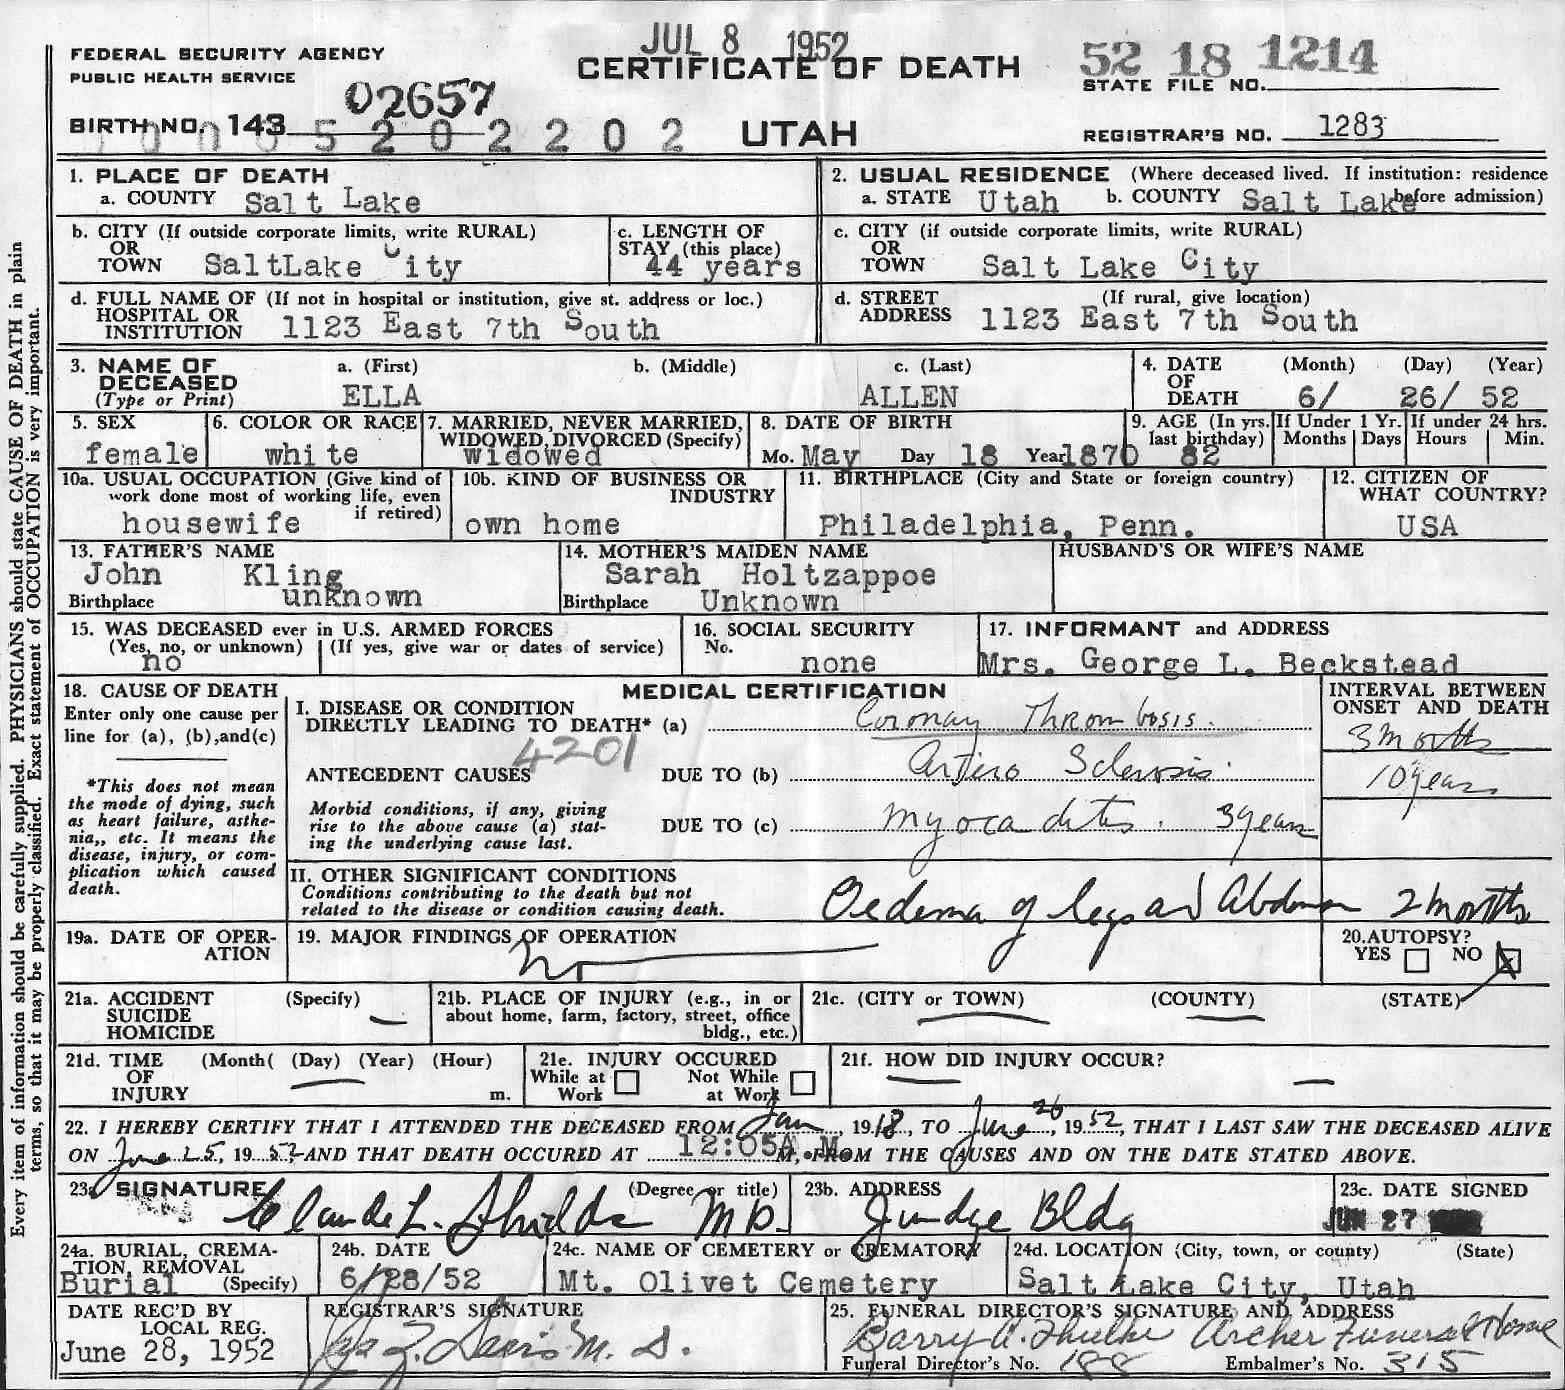 JUL 8 1952
FEDERAL SECURITY AGENCY
PUBLIC HEALTH SERVICE
CERTIFICATE OF DEATH
52 18 1214
STATE FILE NO.
02657
BIRTH NO. 143
5 2 0 2 2 0 2
UTAH
REGISTRAR'S NO. 1283
1. PLACE OF DEATH
a. COUNTY Salt Lake
2. USUAL RESIDENCE (Where deceased lived. If institution: residence before admission)
a. STATE Utah b. COUNTY Salt Lake
b. CITY (If outside corporate limits, write RURAL)
OR
TOWN SaltLake City
c. LENGTH OF
STAY (this place)
44 years
c. CITY (if outside corporate limits, write RURAL)
OR
TOWN Salt Lake City
d. FULL NAME OF (If not in hospital or institution, give st. address or loc.)
HOSPITAL OR
INSTITUTION 1123 East 7th South
d. STREET (If rural, give location)
ADDRESS 1123 East 7th South
3. NAME OF
DECEASED
(Type or Print)
a. (First)
ELLA
b. (Middle)
c. (Last)
ALLEN
4. DATE
OF
DEATH
(Month) (Day) (Year)
6/ 26/ 52
5. SEX
female
6. COLOR OR RACE
white
7. MARRIED, NEVER MARRIED,
WIDOWED, DIVORCED (Specify)
widowed
8. DATE OF BIRTH
Mo. May Day 18 Year 1870
9. AGE (In yrs.
last birthday)
82
If Under 1 Yr.
Months Days
If under 24 hrs.
Hours Min.
10a. USUAL OCCUPATION (Give kind of
work done most of working life, even
if retired)
housewife
10b. KIND OF BUSINESS OR
INDUSTRY
own home
11. BIRTHPLACE (City and State or foreign country)
Philadelphia, Penn.
12. CITIZEN OF
WHAT COUNTRY?
USA
13. FATHER'S NAME
John Kling
Birthplace unknown
14. MOTHER'S MAIDEN NAME
Sarah Holtzappoe
Birthplace Unknown
HUSBAND'S OR WIFE'S NAME
15. WAS DECEASED ever in U.S. ARMED FORCES
(Yes, no, or unknown) (If yes, give war or dates of service)
no
16. SOCIAL SECURITY
No.
none
17. INFORMANT and ADDRESS
Mrs. George L. Beckstead
18. CAUSE OF DEATH
Enter only one cause per
line for (a), (b), and (c)
*This does not mean
the mode of dying, such
as heart failure, asthe-
nia,, etc. It means the
disease, injury, or com-
plication which caused
death.
MEDICAL CERTIFICATION
INTERVAL BETWEEN
ONSET AND DEATH
I. DISEASE OR CONDITION
DIRECTLY LEADING TO DEATH* (a) Coronay Thrombosis. 3 months
4201
ANTECEDENT CAUSES DUE TO (b) Artero Sclerosis. 10 years
Morbid conditions, if any, giving
rise to the above cause (a) stat-
ing the underlying cause last.
DUE TO (c) Myocaditis. 3 years
II. OTHER SIGNIFICANT CONDITIONS
Conditions contributing to the death but not
related to the disease or condition causing death.
Oedema of legs and Abdomen 2 months
19a. DATE OF OPER-
ATION
19. MAJOR FINDINGS OF OPERATION
no
20. AUTOPSY?
YES NO X
21a. ACCIDENT (Specify)
SUICIDE
HOMICIDE
21b. PLACE OF INJURY (e.g., in or
about home, farm, factory, street, office
bldg., etc.)
21c. (CITY or TOWN) (COUNTY) (STATE)
21d. TIME (Month( (Day) (Year) (Hour)
OF
INJURY m.
21e. INJURY OCCURED
While at Work Not While at Work
21f. HOW DID INJURY OCCUR?
22. I HEREBY CERTIFY THAT I ATTENDED THE DECEASED FROM Jan, 1918, TO June 26, 1952, THAT I LAST SAW THE DECEASED ALIVE
ON June 25, 1952, AND THAT DEATH OCCURED AT 12:05A.M. M., FROM THE CAUSES AND ON THE DATE STATED ABOVE.
23a SIGNATURE (Degree or title)
Claude L. Shields MD.
23b. ADDRESS
Judge Bldg
23c. DATE SIGNED
JUN 27
24a. BURIAL, CREMA-
TION, REMOVAL
(Specify)
Burial
24b. DATE
6/28/52
24c. NAME OF CEMETERY or CREMATORY
Mt. Olivet Cemetery
24d. LOCATION (City, town, or county) (State)
Salt Lake City, Utah
DATE REC'D BY
LOCAL REG.
June 28, 1952
REGISTRAR'S SIGNATURE
M. D.
25. FUNERAL DIRECTOR'S SIGNATURE AND ADDRESS
Archer Funeral Home
Funeral Director's No. 188 Embalmer's No. 315
Every item of information should be carefully supplied. PHYSICIANS should state CAUSE OF DEATH in plain
terms, so that it may be properly classified. Exact statement of OCCUPATION is very important.